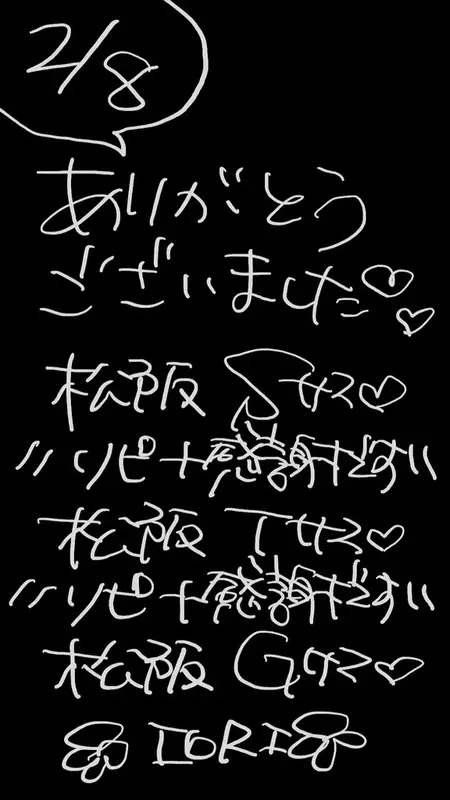 2/8
ありがとう
ございました♡♡
松阪 Sサマ♡
〃リピート感謝です〃
松阪 Tサマ♡
〃リピート感謝です〃
松阪 Gサマ♡
IORI